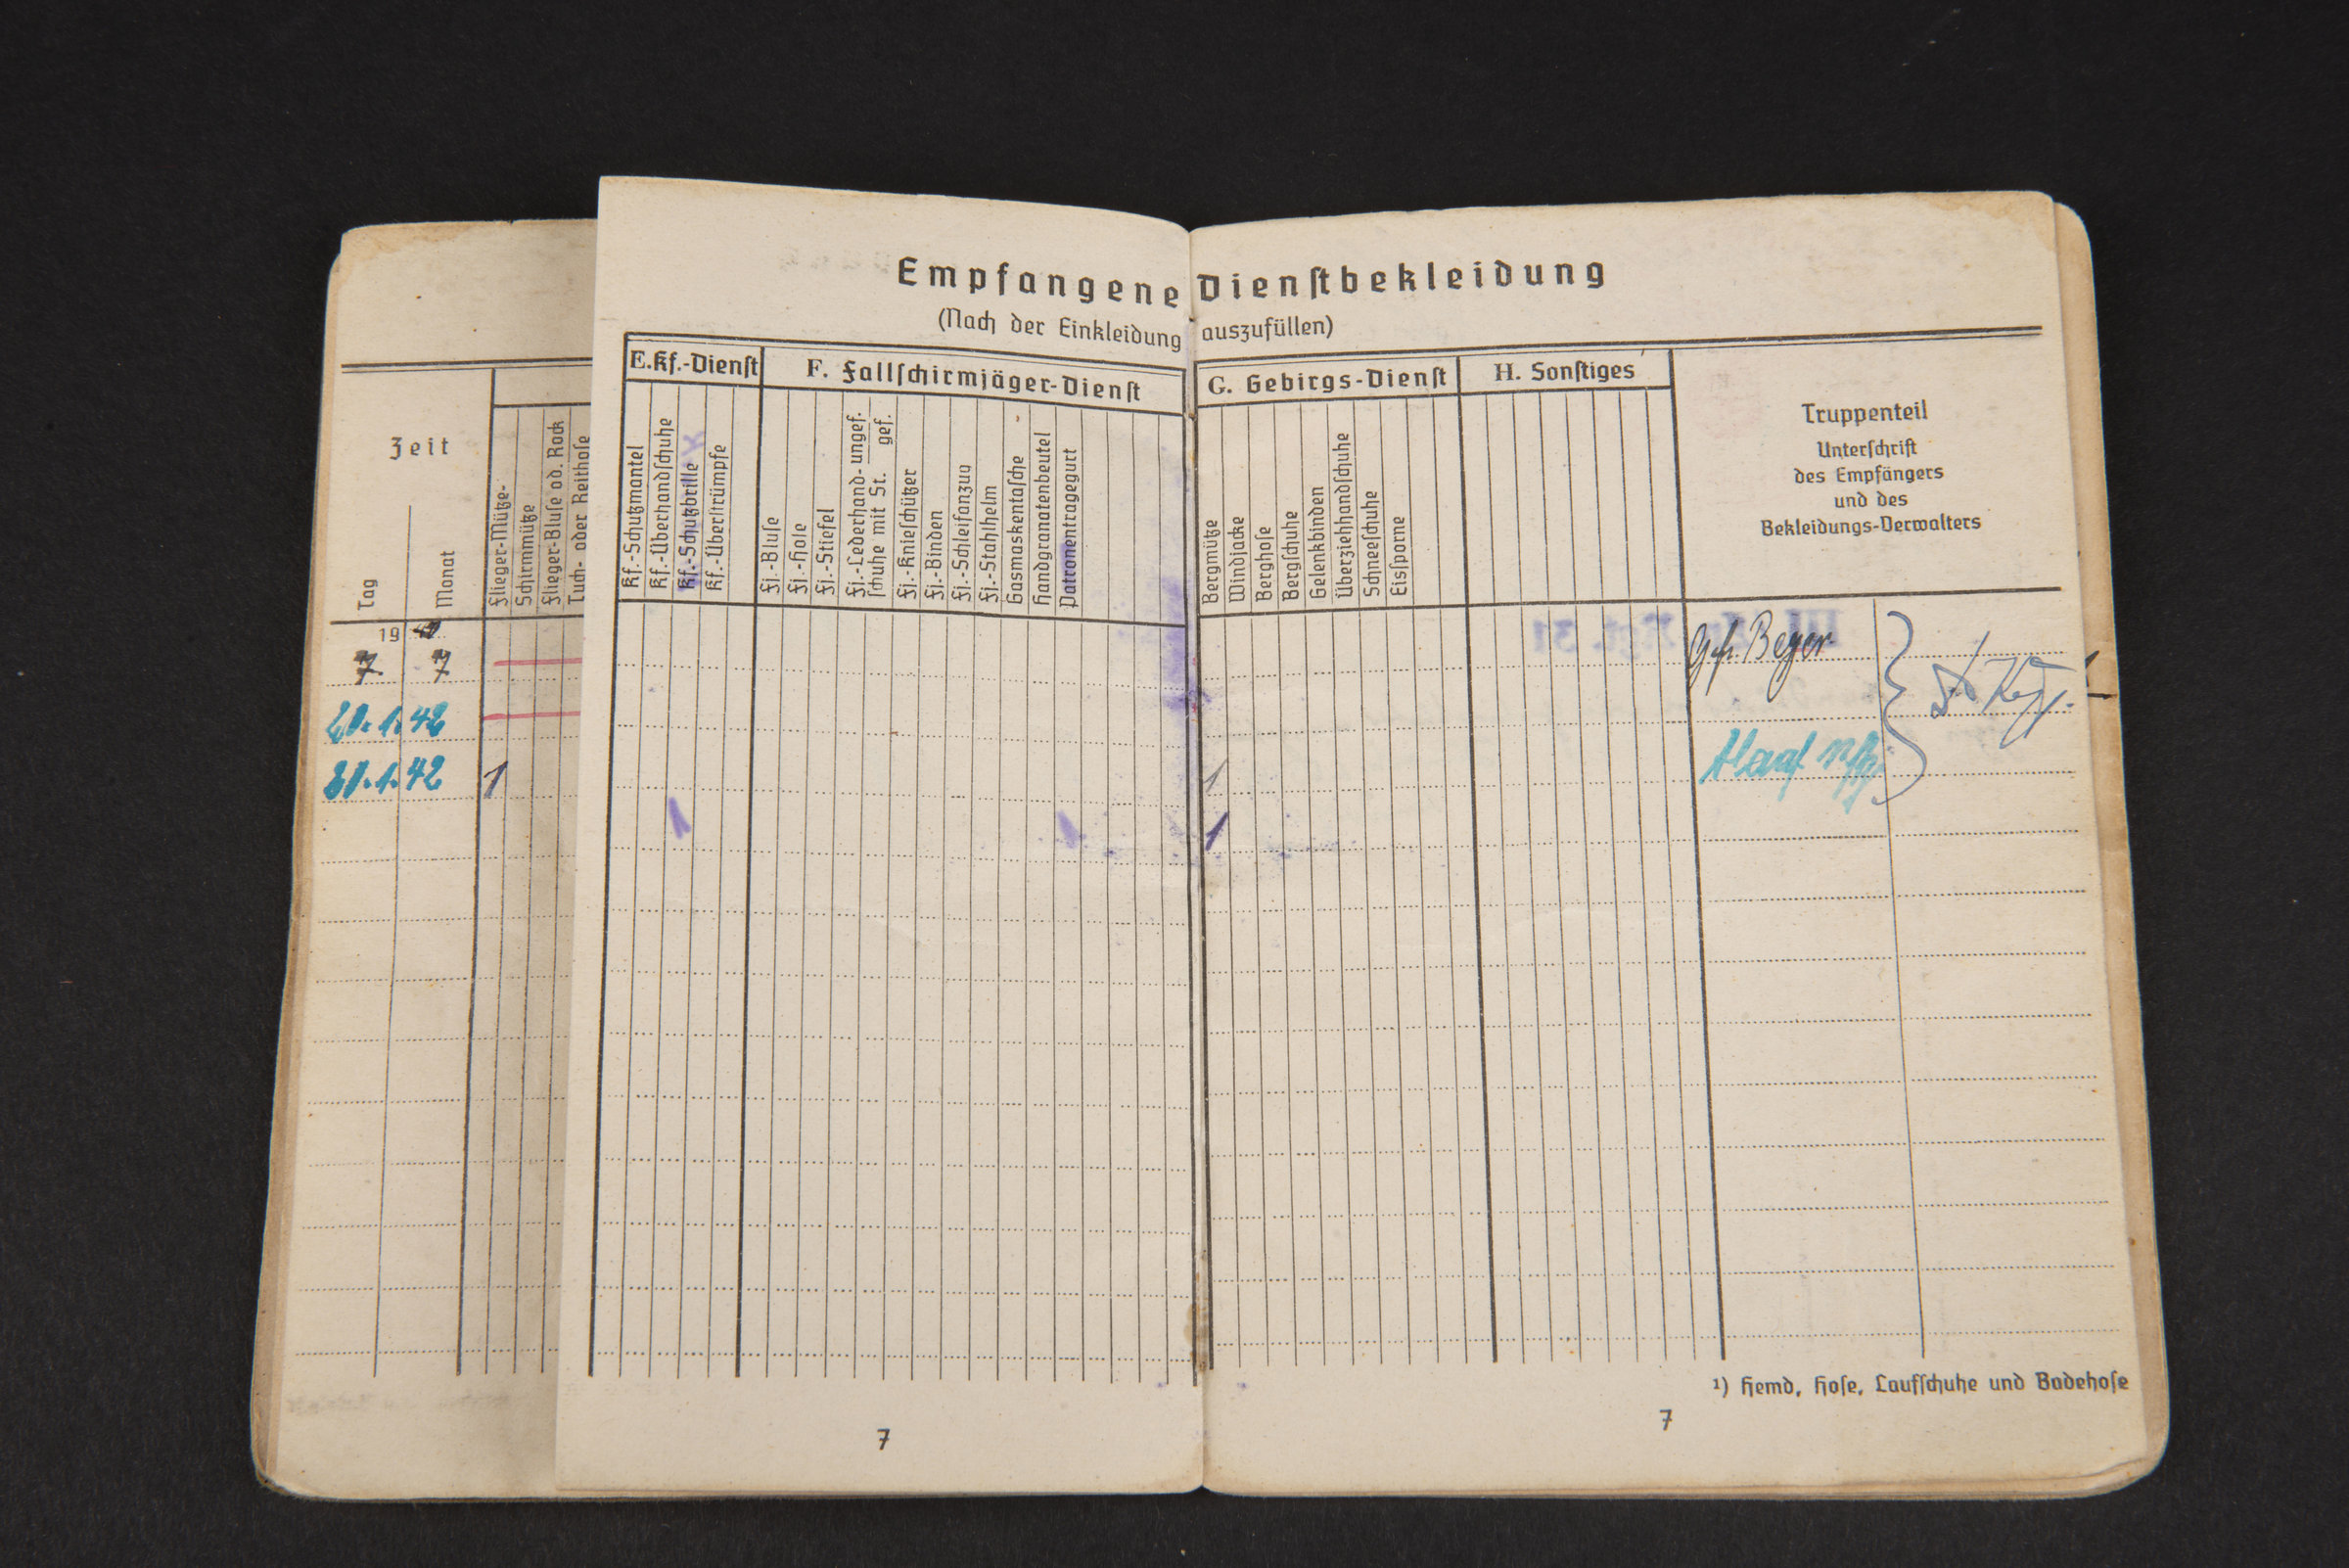 Empfangene Dienſtbekleidung
(Nach der Einkleidung auszufüllen)
Zeit
Tag
Monat
Flieger-Mütze-
Schirmmütze
Flieger-Bluſe od. Rock
Tuch- oder Reithoſe
E. Kf.-Dienſt
Kf.-Schutzmantel
Kf.-Überhandſchuhe
Kf.-Schutzbrille
Kf.-Überſtrümpfe
F. Fallſchirmjäger-Dienſt
Fj.-Bluſe
Fj.-Hoſe
Fj.-Stiefel
Fj.-Lederhand- ungef.
ſchuhe mit St. gef.
Fj.-Knieſchützer
Fj.-Binden
Fj.-Schleifanzug
Fj.-Stahlhelm
Gasmaskentaſche
Handgranatenbeutel
Patronentragegurt
G. Gebirgs-Dienſt
Bergmütze
Windjacke
Berghoſe
Bergſchuhe
Gelenkbinden
Überziehhandſchuhe
Schneeſchuhe
Eisſporne
H. Sonſtiges
Truppenteil
Unterſchrift
des Empfängers
und des
Bekleidungs-Verwalters
19 40
7. 7 Gefr. Beyer
20.1.42
21.1.42 1 1
1 1
¹) Hemd, Hoſe, Laufſchuhe und Badehoſe
7
7